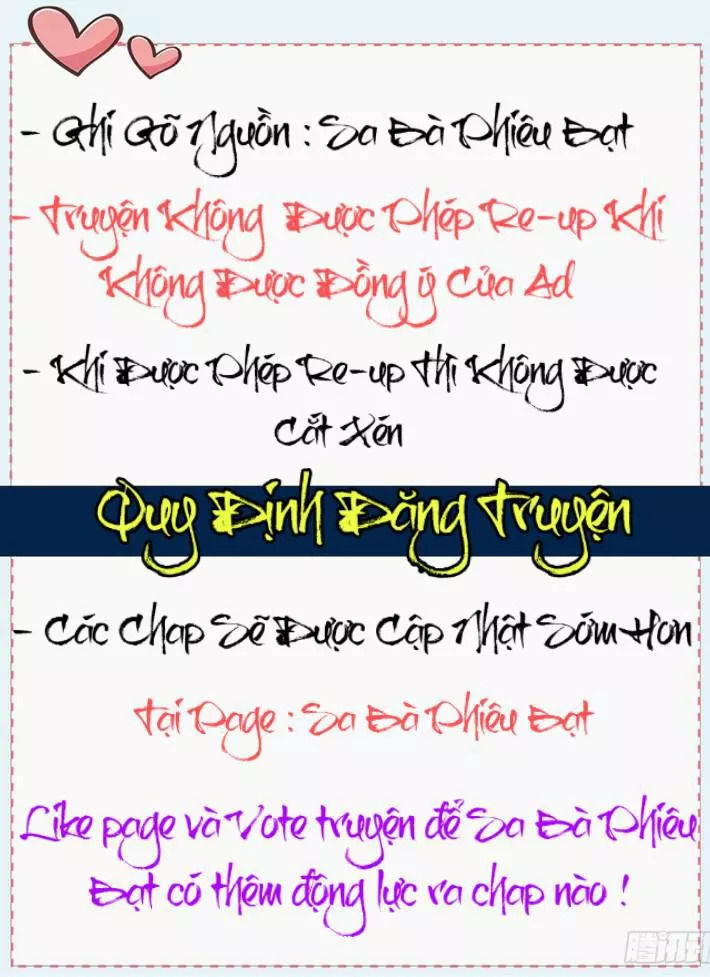 - Ghi Gõ Nguồn : Sa Bà Phiêu Bạt
- Truyện Không Được Phép Re-up Khi
Không Được Đồng ý Của Ad
- Khi Được Phép Re-up Thì Không Được
Cắt Xén
Quy Định Đăng Truyện
- Các Chap Sẽ Được Cập Nhật Sớm Hơn
Tại Page : Sa Bà Phiêu Bạt
Like page và Vote truyện để Sa Bà Phiêu
Bạt có thêm động lực ra chap nào !